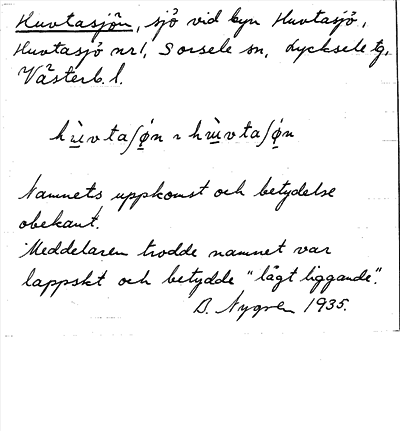 Huvtasjön, sjö vid byn Huvtasjö,
Huvtasjö nr 1, Sorsele sn, Lycksele tg,
Västerb. l.
Namnets uppkomst och betydelse
obekant.
Meddelaren trodde namnet var
lappskt och betydde "lågt liggande".
B. Nygren 1935.